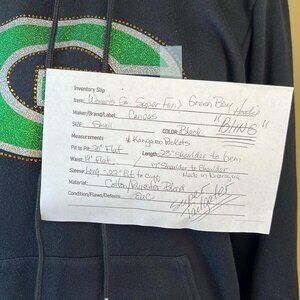 Inventory Slip
Item: Womens Go Super fan) Green Bay Hoodie
Maker/Brand/Label: Canvas "BLING"
SIZE: Small COLOR: Black
Measurements * Kangaroo Pockets
Pit to Pit: 20" Flat Length: 28" Shoulder to hem
Waist: 19" Flat 17" Shoulder to Shoulder
Sleeve: Long - 22" Pit to Cuff Made in Nicaragua
Material: Cotton/Polyester Blend
Condition/Flaws/Defects: EUC Super
Tailgater